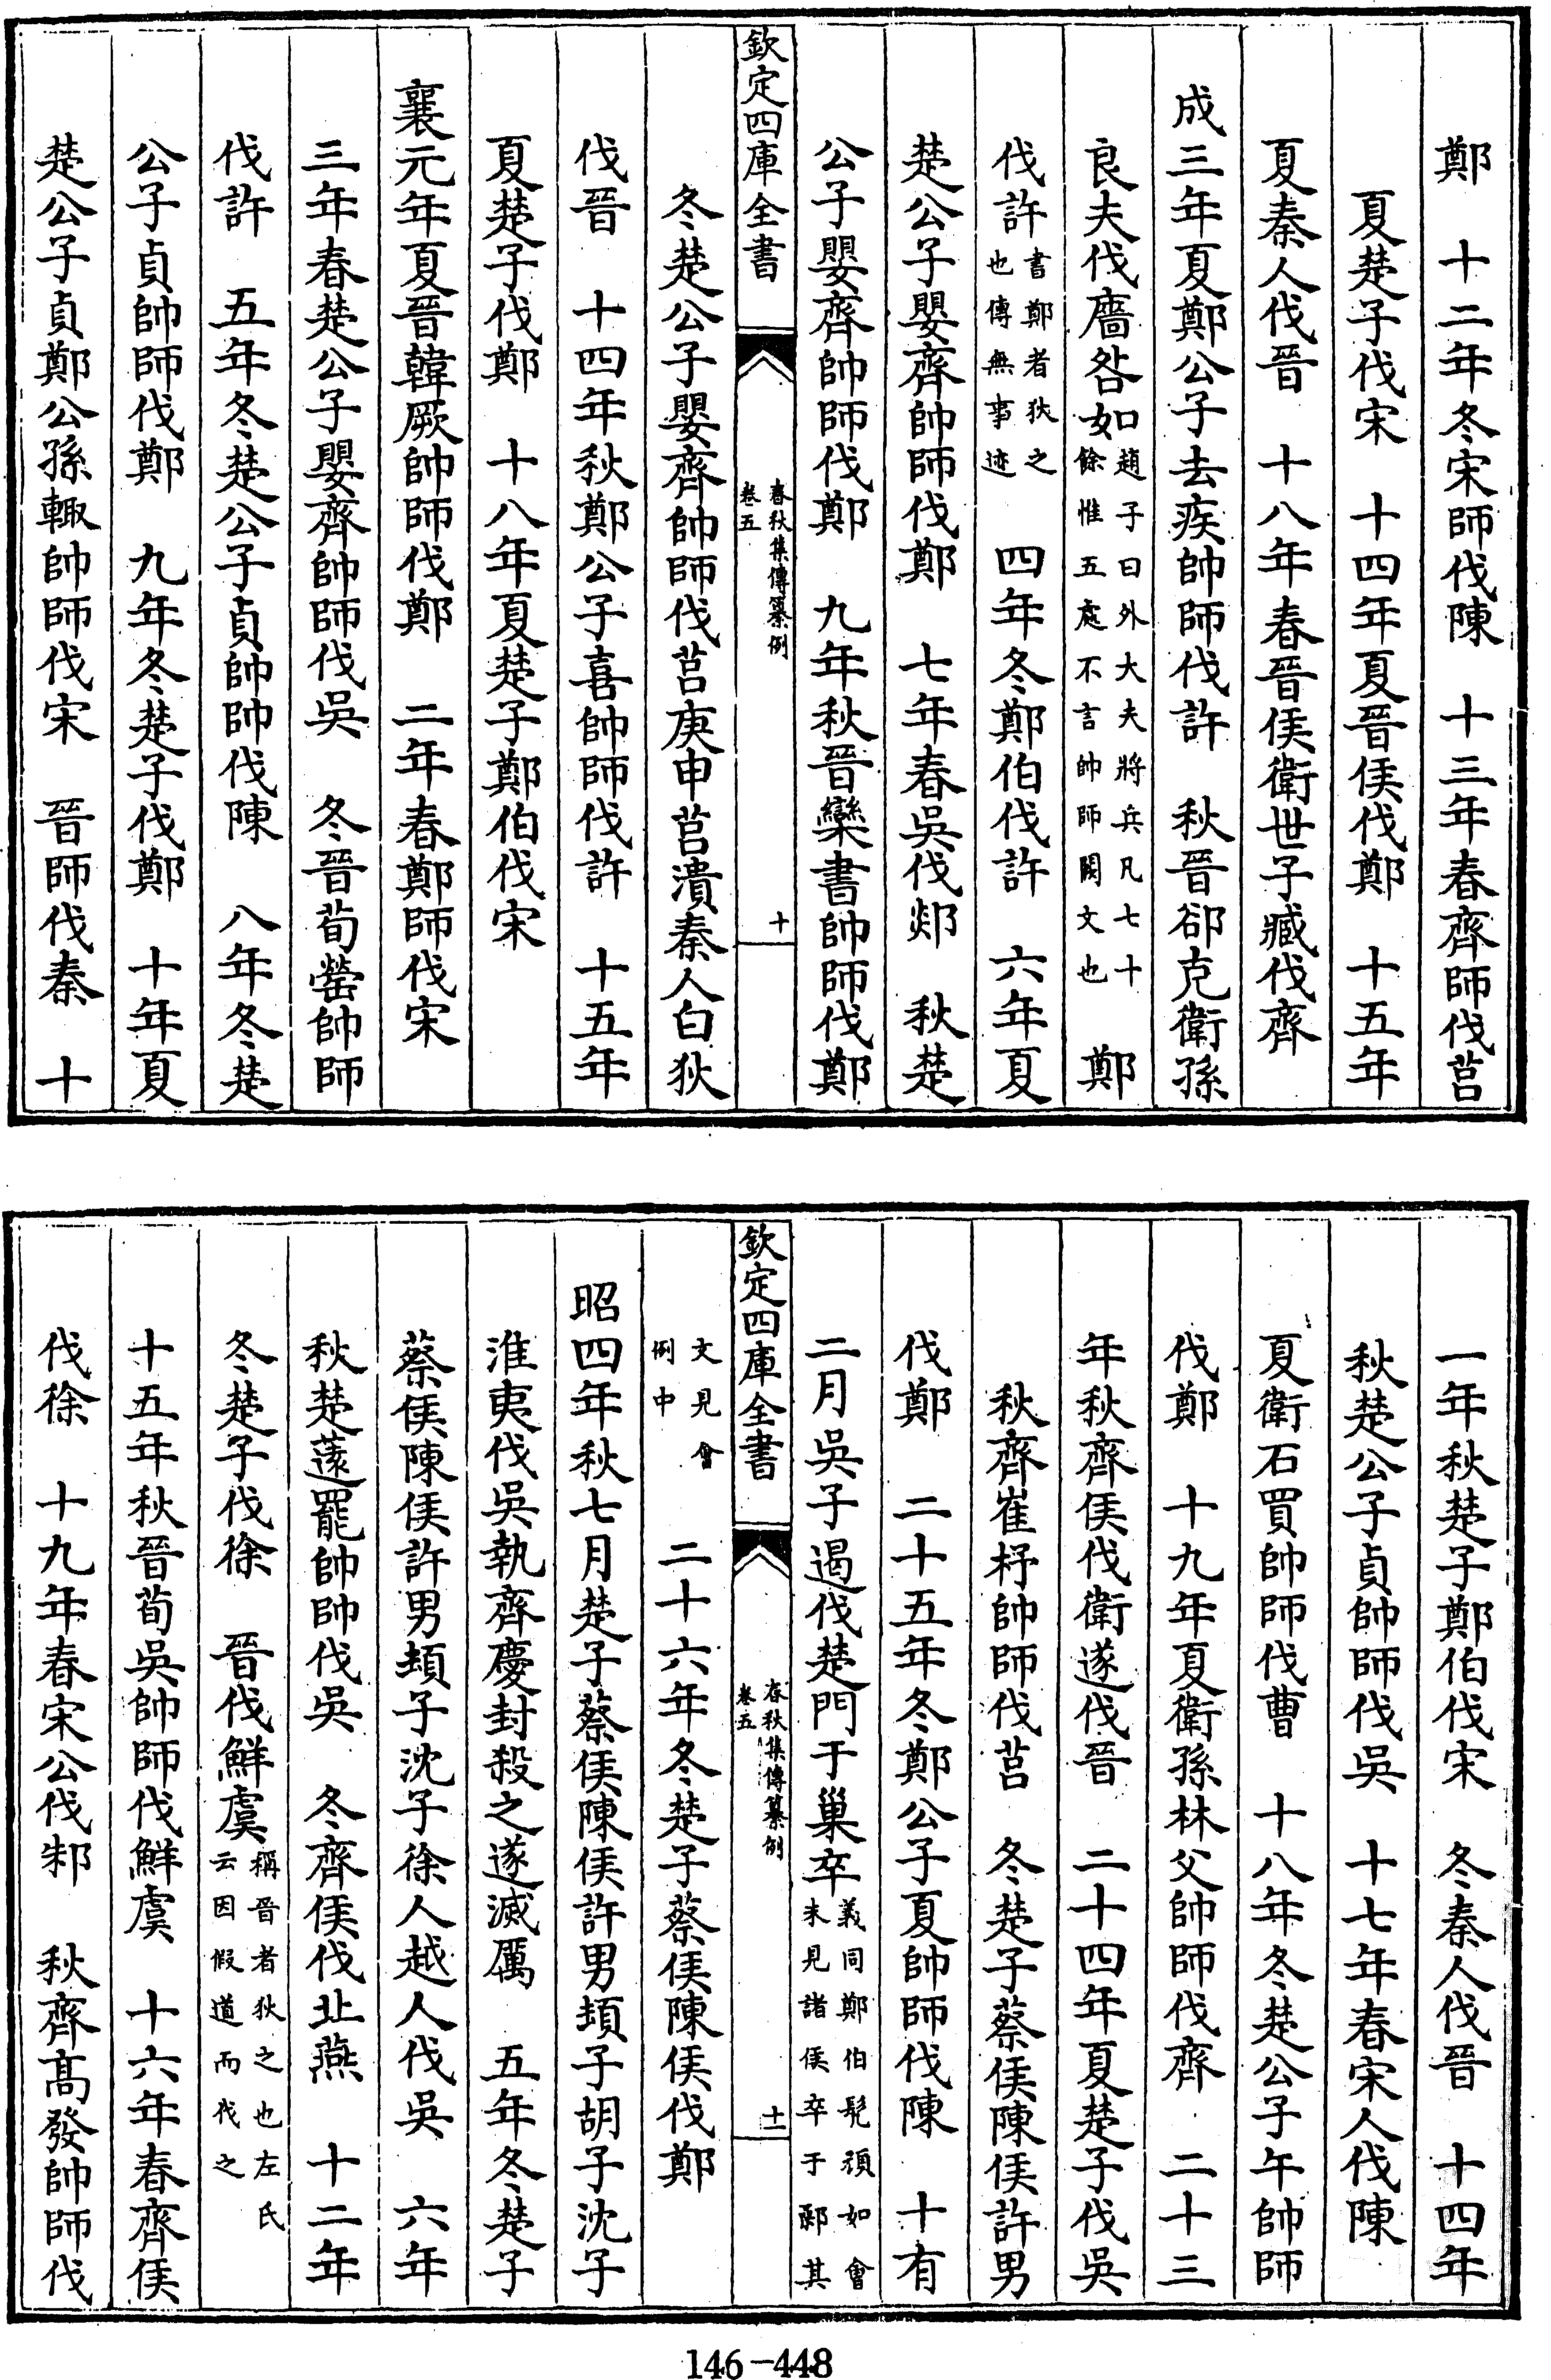 鄭　十二年冬宋師伐陳　十三年春齊師伐莒
夏楚子伐宋　十四年夏晉侯伐鄭　十五年
夏秦人伐晉　十八年春晉侯衛世子臧伐齊
成三年夏鄭公子去疾帥師伐許　秋晉郤克衛孫
良夫伐廧咎如趙子曰外大夫將兵凡七十餘惟五處不言帥師闕文也　鄭
伐許書鄭者狄之也傳無事迹　四年冬鄭伯伐許　六年夏
楚公子嬰齊帥師伐鄭　七年春吳伐郯　秋楚
公子嬰齊帥師伐鄭　九年秋晉欒書帥師伐鄭
欽定四庫全書　春秋集傳纂例卷五　十
冬楚公子嬰齊帥師伐莒庚申莒潰秦人白狄
伐晉　十四年秋鄭公子喜帥師伐許　十五年
夏楚子伐鄭　十八年夏楚子鄭伯伐宋
襄元年夏晉韓厥帥師伐鄭　二年春鄭師伐宋
三年春楚公子嬰齊帥師伐吳　冬晉荀罃帥師
伐許　五年冬楚公子貞帥帥伐陳　八年冬楚
公子貞帥師伐鄭　九年冬楚子伐鄭　十年夏
楚公子貞鄭公孫輒帥師伐宋　晉師伐秦　十
一年秋楚子鄭伯伐宋　冬秦人伐晉　十四年
秋楚公子貞帥師伐吳　十七年春宋人伐陳
夏衛石買帥師伐曹　十八年冬楚公子午帥師
伐鄭　十九年夏衛孫林父帥師伐齊　二十三
年秋齊侯伐衛遂伐晉　二十四年夏楚子伐吳
秋齊崔杼帥師伐莒　冬楚子蔡侯陳侯許男
伐鄭　二十五年冬鄭公子夏帥師伐陳　十有
二月吳子遏伐楚門于巢卒義同鄭伯髠頑如會未見諸侯卒于鄵其
欽定四庫全書　春秋集傳纂例卷五　十一
文見會例中　二十六年冬楚子蔡侯陳侯伐鄭
昭四年秋七月楚子蔡侯陳侯許男頓子胡子沈子
淮夷伐吳執齊慶封殺之遂滅厲　五年冬楚子
蔡侯陳侯許男頓子沈子徐人越人伐吳　六年
秋楚薳罷帥帥伐吳　冬齊侯伐北燕　十二年
冬楚子伐徐　晉伐鮮虞稱晉者狄之也左氏云因假道而伐之
十五年秋晉荀吳帥師伐鮮虞　十六年春齊侯
伐徐　十九年春宋公伐邾　秋齊高發帥師伐
146-448